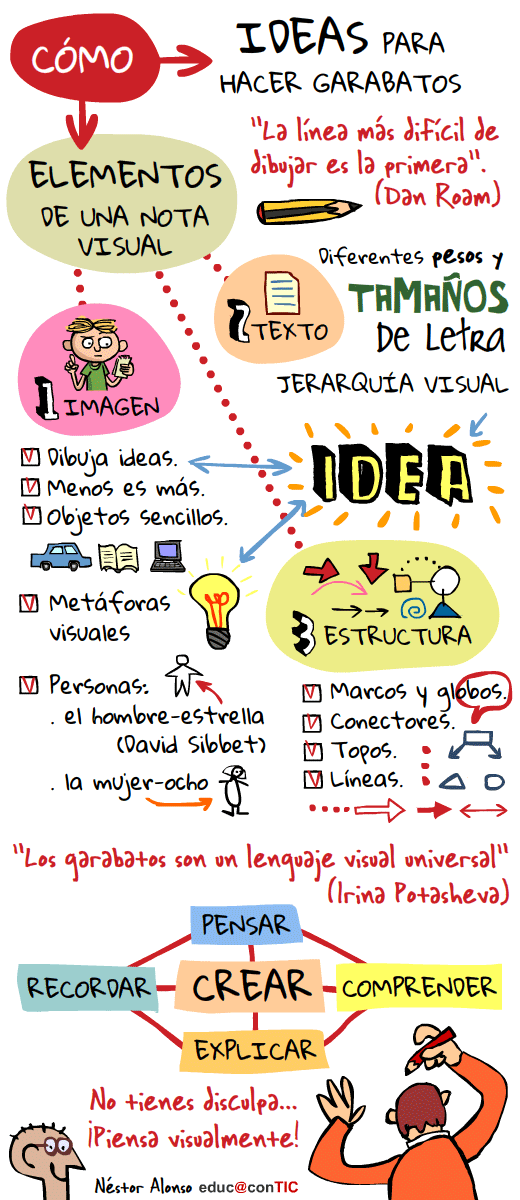 CÓMO
IDEAS PARA
HACER GARABATOS
"La línea más difícil de
dibujar es la primera".
(Dan Roam)
ELEMENTOS
DE UNA NOTA
VISUAL
Diferentes pesos y
TAMAÑOS
De Letra
JERARQUÍA VISUAL
2 TEXTO
1 IMAGEN
Dibuja ideas.
Menos es más.
Objetos sencillos.
IDEA
Metáforas
visuales
3 ESTRUCTURA
Personas:
. el hombre-estrella
(David Sibbet)
. la mujer-ocho
Marcos y globos.
Conectores.
Topos.
Líneas.
"Los garabatos son un lenguaje visual universal"
(Irina Potasheva)
PENSAR
RECORDAR
CREAR
COMPRENDER
EXPLICAR
No tienes disculpa...
¡Piensa visualmente!
Néstor Alonso educ@conTIC